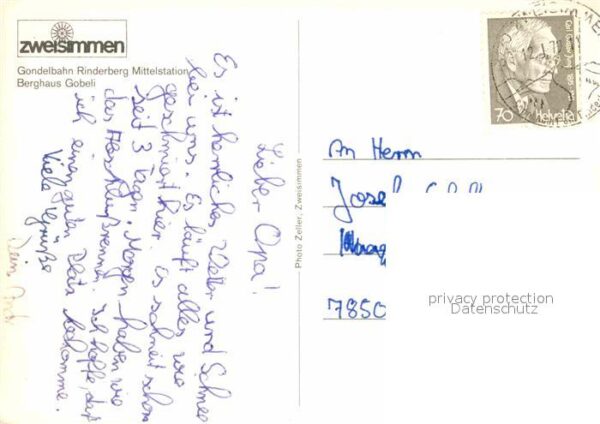 zweisimmen
Gondelbahn Rinderberg Mittelstation
Berghaus Gobeli
Lieber Opa!
Es ist herrliches Wetter und Schnee
bei uns. Es läuft alles wie
geschmiert hier. Es schneit schon
seit 3 Tagen. Morgen haben wir
das Abschlußrennen. Ich hoffe, daß
ich einen guten Platz bekomme.
Viele Grüße
Dein
Photo Zeller, Zweisimmen
ZWEISIMMEN
Helvetia
70
An Herrn
Josef
7850
privacy protection
Datenschutz